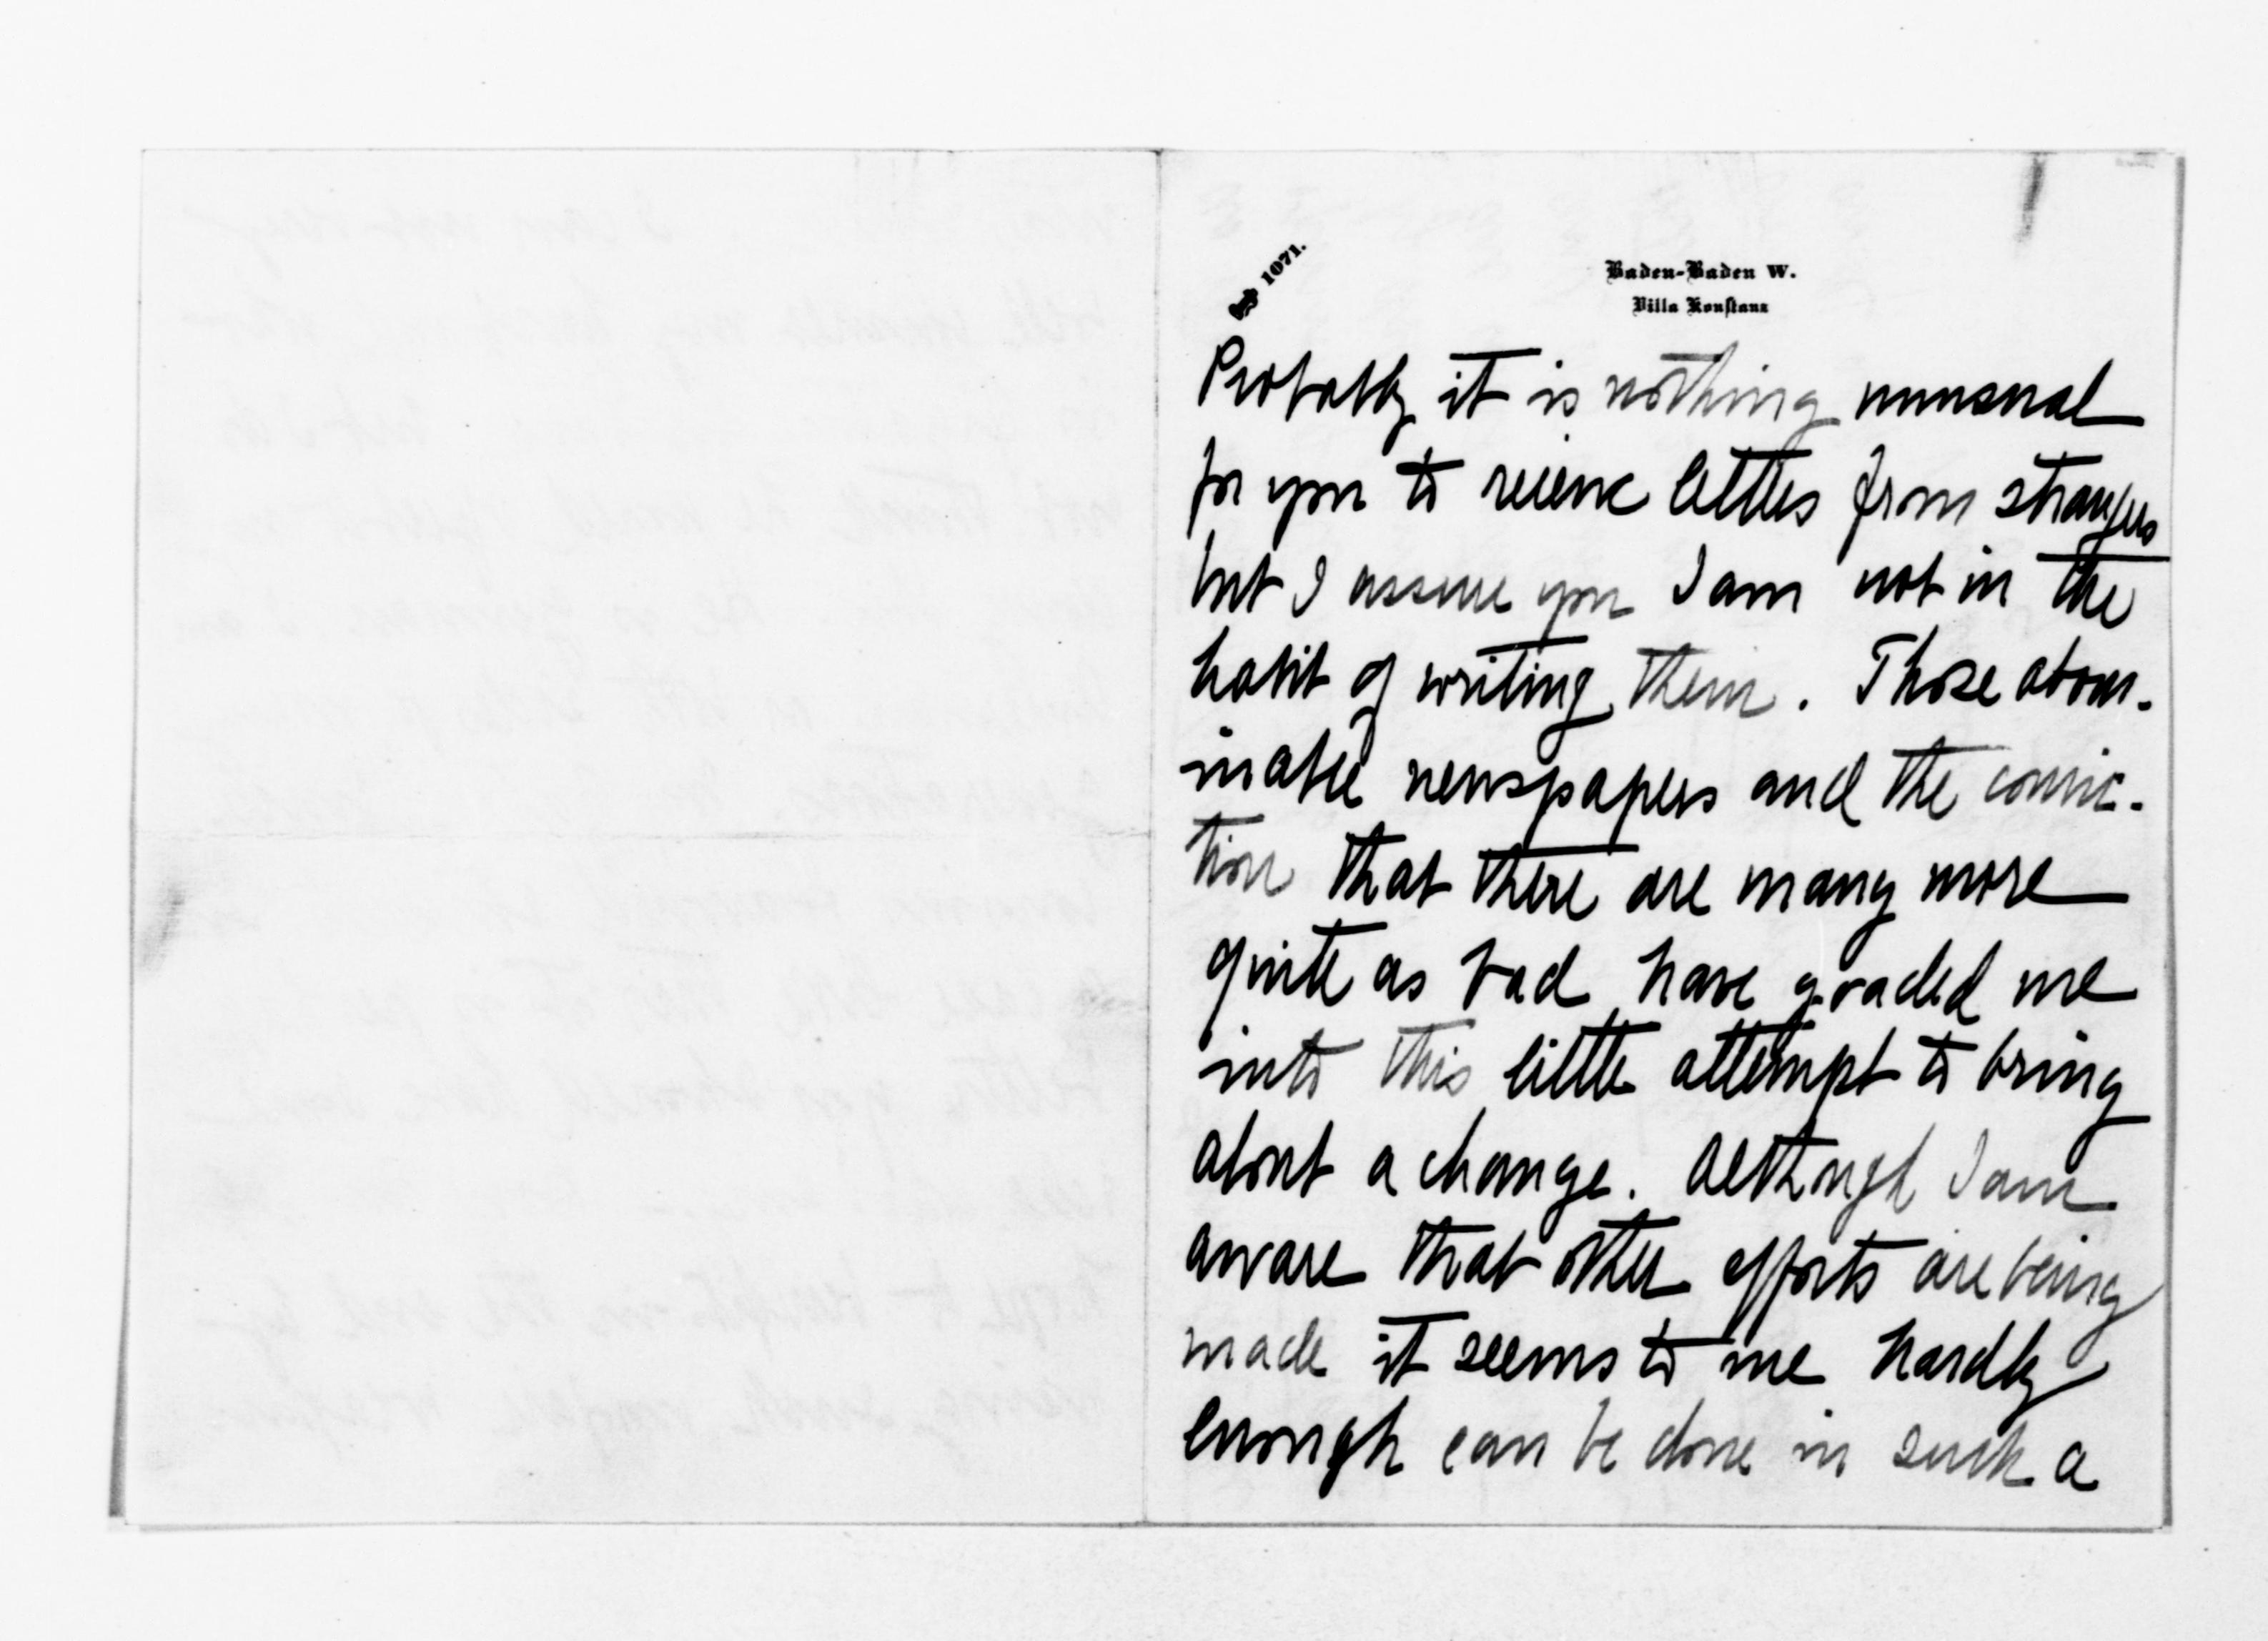 1071.
Baden-Baden W.
Villa Konstanz
Probably it is nothing unusual
for you to receive letters from strangers
but I assure you I am not in the
habit of writing them. Those abom-
inable newspapers and the convic-
tion that there are many more
quite as bad have goaded me
into this little attempt to bring
about a change. Although I am
aware that other efforts are being
made it seems to me hardly
enough can be done in such a